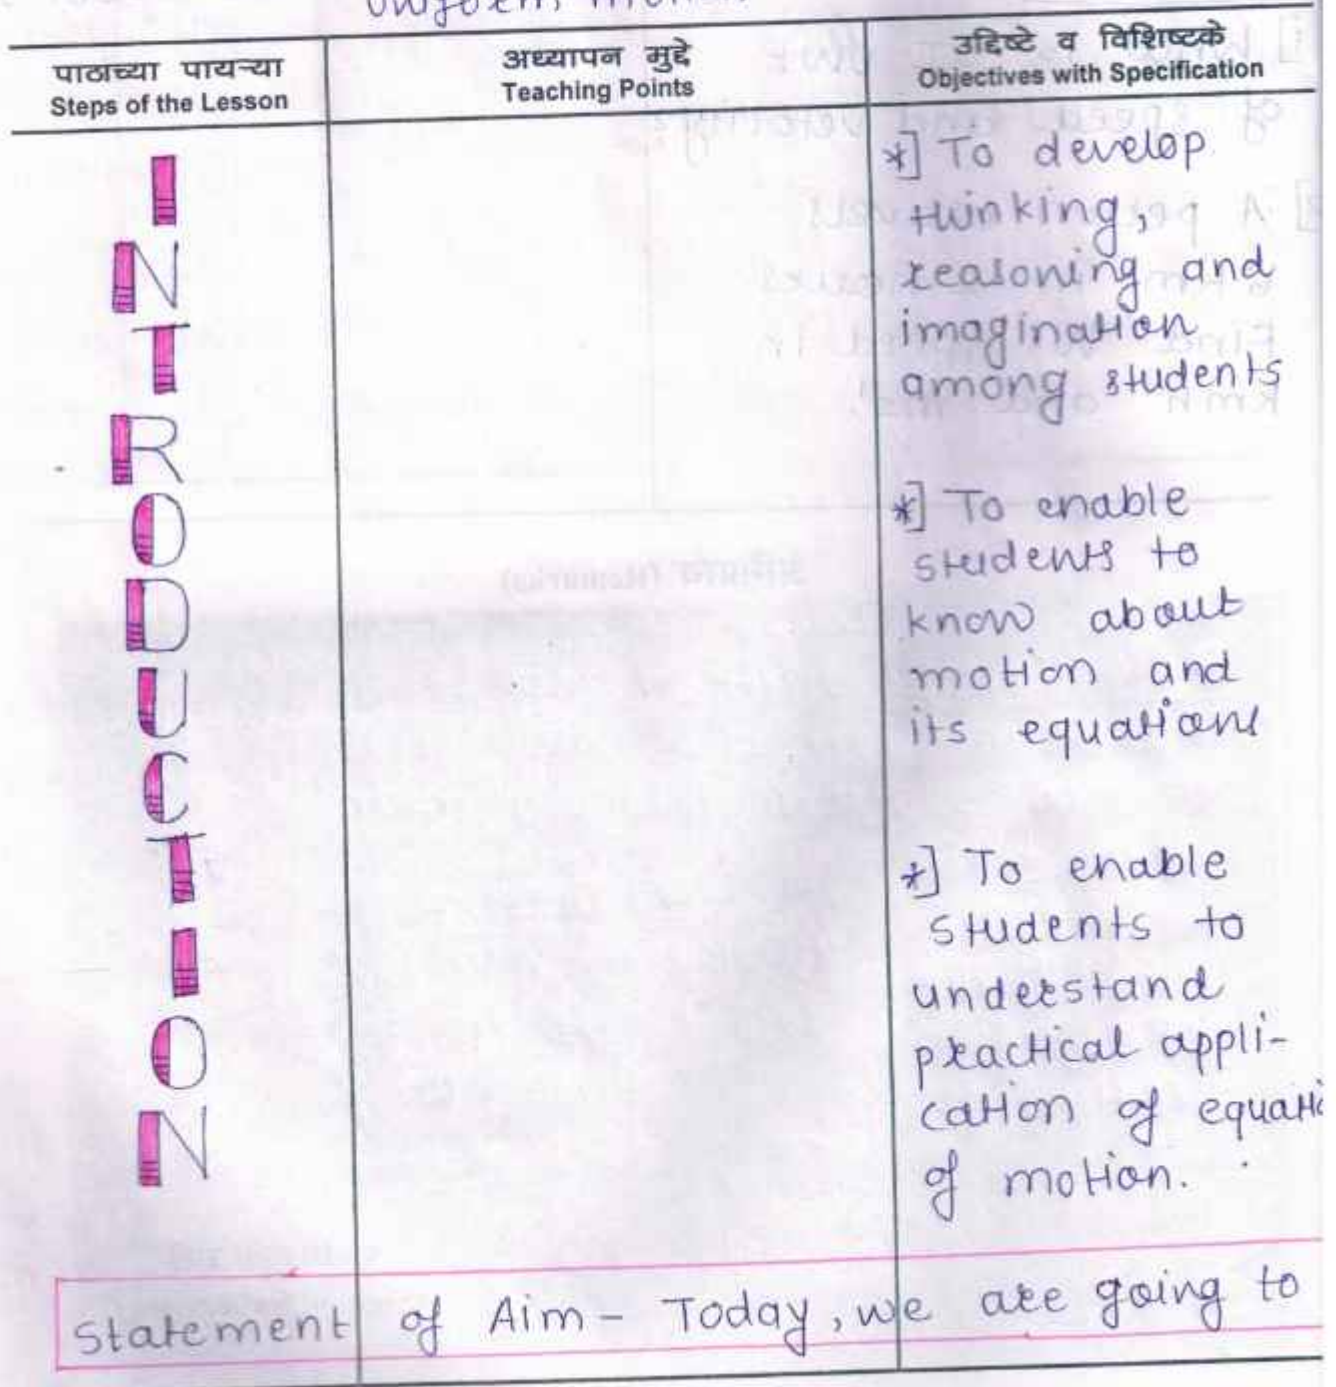 पाठाच्या पायऱ्या
Steps of the Lesson
अध्यापन मुद्दे
Teaching Points
उद्दिष्टे व विशिष्टके
Objectives with Specification
INTRODUCTION
*] To develop
thinking,
reasoning and
imagination
among students
*] To enable
students to
know about
motion and
its equations
*] To enable
students to
understand
practical appli-
cation of
of motion.
Statement of Aim - Today, we are going to